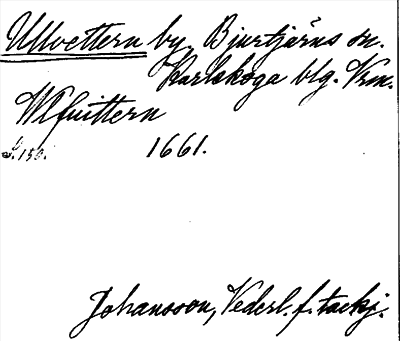 Ullvettern by, Bjurtjärns sn.
Karlskoga blg. Vrm.
Wlfuittern
S. 150. 1661.
Johansson, Vederl. f. tackj.